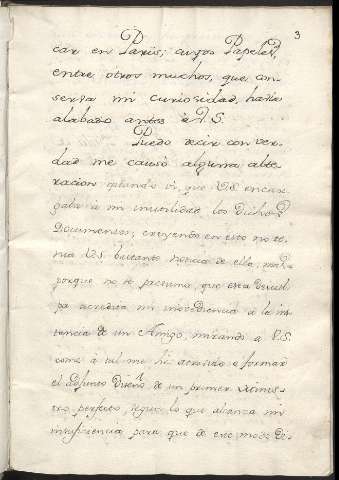 3
car en Paris; cuyos Papeles,
entre otros muchos, que con-
serva mi curiosidad, havia
alabado antes à V.S.
Puedo decir con ver-
dad me causò alguna alte-
racion quando vi, que V.S. encar-
gaba à mi inutilidad los dichos
Documentos; creyendo en esto no te-
nia V.S. bastante noticia de ella; mas
porque no se presuma, que esta
acredita mi inobediencia à la ins-
tancia de un Amigo, mirando à V.S.
como à tal me hè atrevido à formar
el adjunto Diseño de un primer Minis-
tro perfecto, segun lo que alcanza mi
insuficiencia para que de ese modo De-